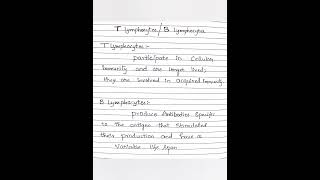 T lymphocytes / B Lymphocytes
T Lymphocytes:-
participate in Cellular
Immunity and are longer lived;
they are involved in acquired Immunity.
B Lymphocytes:-
produce Antibodies Specific
to the antigen that stimulated
their production and have a
Variable life span